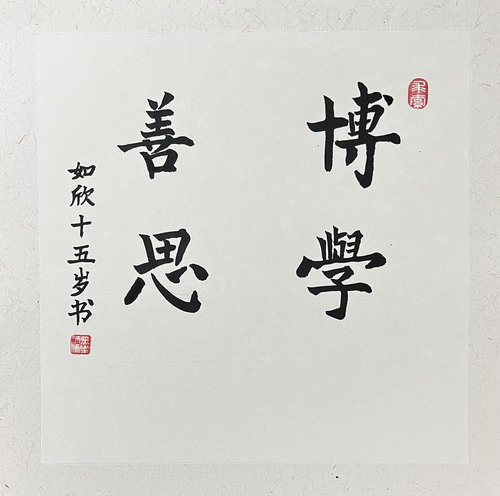 博學
善思
如欣十五岁书